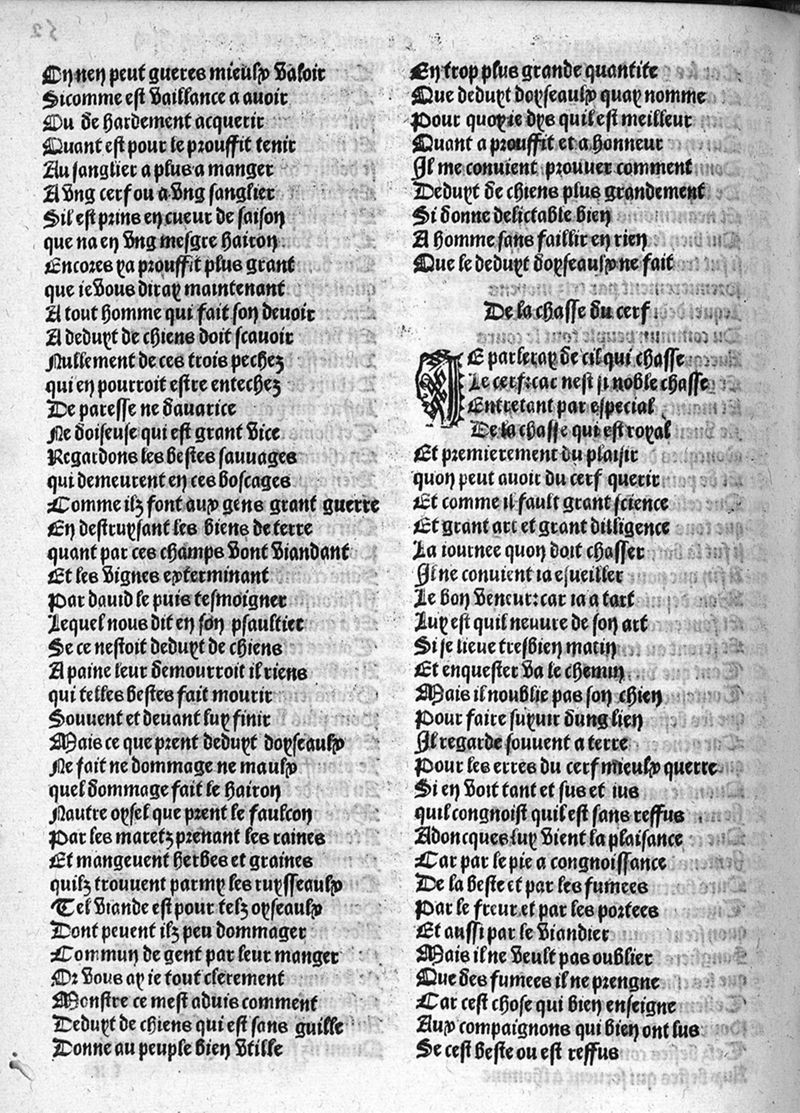 On nen peut gueres mieulx valoir
Sicomme est vaillance a avoir
Ou de hardement acquerir
Quant est pour le prouffit tenir
Au sanglier a plus a manger
A ung cerf ou a ung sanglier
Sil est prins en cueur de saison
que na en ung mesgre hairon
Encores ya prouffit plus grant
que ie vous diray maintenant
A tout homme qui fait son devoir
A deduyt de chiens doit scavoir
Nullement de ces trois pechez
qui en pourroit estre entechez
De paresse ne davarice
Ne doiseuse qui est grant vice
Regardons les bestes sauvages
qui demeurent en ces boscages
Comme ilz font aux gens grant guerre
En destruysant les biens de terre
quant par ces champs vont viandant
Et les vignes exterminant
Par david le puis tesmoigner
Lequel nous dit en son psaultier
Se ce nestoit deduyt de chiens
A paine leur demourroit il riens
qui telles bestes fait mourir
Souvent et devant luy finir
Mais ce que prent deduyt doyseaulx
Ne fait ne dommage ne maulx
quel dommage fait le hairon
Nautre oysel que prent le faulcon
Par les maretz prenant les raines
Et mangeuent herbes et graines
quilz trouvent parmy les ruysseaulx
Tel viande est pour telz oyseaulx
Dont peuent ilz peu dommager
Commun de gent par leur manger
Or vous ay ie tout clerement
Monstre ce mest aduis comment
Deduyt de chiens qui est sans guille
Donne au peuple bien utille
En trop plus grande quantite
Que deduyt doyseaulx quay nomme
Pour quoy ie dys quil est meilleur
Quant a prouffit et a honneur
Il me convient prouver comment
Deduyt de chiens plus grandement
Si donne delictable bien
A homme sans faillir en rien
Que le deduyt doyseaulx ne fait
De la chasse du cerf
IE parleray de cil qui chasse
Le cerf:car nest si noble chasse
Entretant par especial
De la chasse qui est royal
Et premierement du plaisir
quon peut avoir du cerf querir
Et comme il fault grant science
Et grant art et grant dilligence
La iournee quon doit chasser
Il ne convient ia esveiller
Le bon veneur:car ia a tart
Luy est quil neuvre de son art
Si se lieve tresbien matin
Et enquester va le chemin
Mais il noublie pas son chien
Pour faire suyvir dung lien
Il regarde souvent a terre
Pour les erres du cerf mieulx querre
Si en voit tant et sus et ius
quil congnoist quil est sans reffus
Adoncques luy vient la plaisance
Car par le pie a congnoissance
De la beste et par les fumees
Par le freur et par les portees
Et aussi par le viandier
Mais il ne veult pas oublier
Que des fumees il ne prengne
Car cest chose qui bien enseigne
Aux compaignons qui bien ont sus
Se cest beste ou est reffus